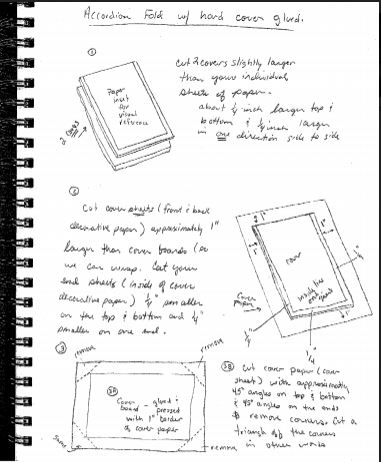 Accordion Fold w/ hard cover glued.
①
Cut 2 covers slightly larger
than your individual
sheets of paper.
about 1/4 inch larger top &
bottom & 1/4 inch larger
in one direction side to side
Paper
inset
for
visual
reference
2 covers
②
Cut cover sheets (front & back
decorative paper) approximately 1"
larger than cover boards (so
we can wrap. Cut your
end sheets (inside of cover
decorative paper) 1/4" smaller
on the top & bottom and 1/4"
smaller on one end.
cover
Cover
Paper
1"
1/4"
1/4"
③
remove
remove
remove
3A
Cover - glued &
board pressed
with 1" border
of cover paper
3B
Cut cover paper (cover
sheet) with approximately
45° angles on top & bottom
& 45° angles on the ends
to remove corners. Cut a
triangle off the corners
in other words